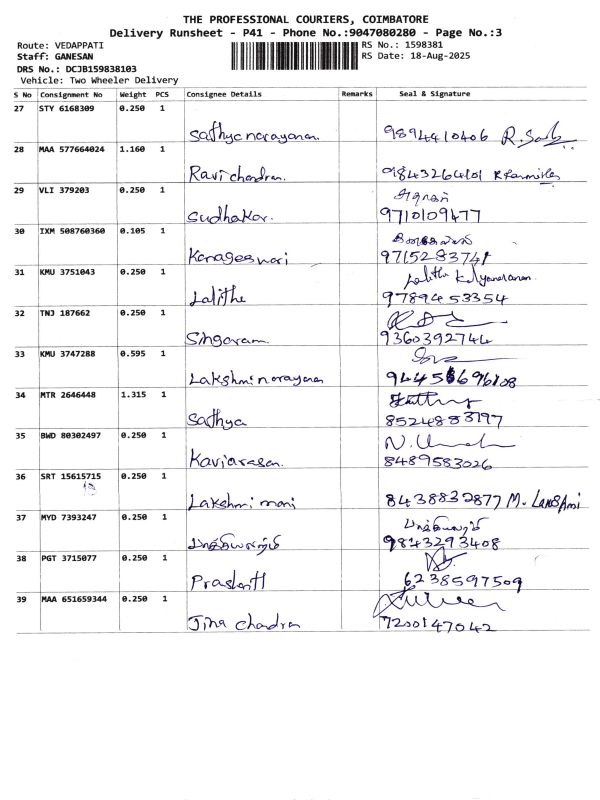 THE PROFESSIONAL COURIERS, COIMBATORE
Delivery Runsheet - P41 - Phone No.:9047080280 - Page No.:3
Route: VEDAPPATI
RS No.: 1598381
Staff: GANESAN
RS Date: 18-Aug-2025
DRS No.: DCJB159838103
Vehicle: Two Wheeler Delivery
S No Consignment No Weight PCS Consignee Details Remarks Seal & Signature
27 STY 6168309 0.250 1
Sathyanarayanan 9894410406
28 MAA 577664024 1.160 1
Ravichandran. 9843264101
29 VLI 379203 0.250 1
Sudhakar. 9710109477
30 IXM 508760360 0.105 1
Kanageswari 9715283741
31 KMU 3751043 0.250 1 Lalitha Kalyanaraman
Lalitha 9789453354
32 TNJ 187662 0.250 1
Singaram 9360392744
33 KMU 3747288 0.595 1
Lakshminarayanan
34 MTR 2646448 1.315 1
Sathya 8524883197
35 BWD 80302497 0.250 1
Kaviarasan. 8489583026
36 SRT 15615715 0.250 1
Lakshmi mani 8438832877
37 MYD 7393247 0.250 1
9843293408
38 PGT 3715077 0.250 1
Prashanth 6238597509
39 MAA 651659344 0.250 1
Jina chandran 7200147042